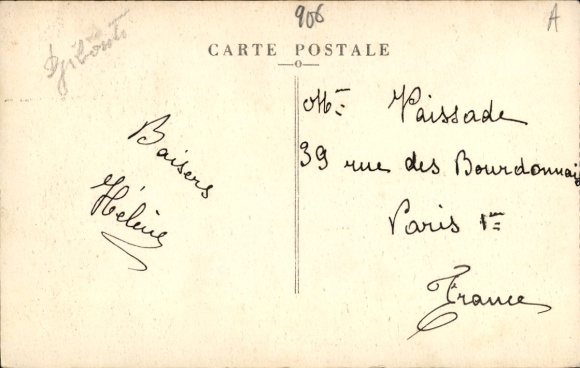 Djibouti
906
A
CARTE POSTALE
Baisers
Hélène
Mme Vaissade
39 rue des Bourdonnais
Paris 1er
France